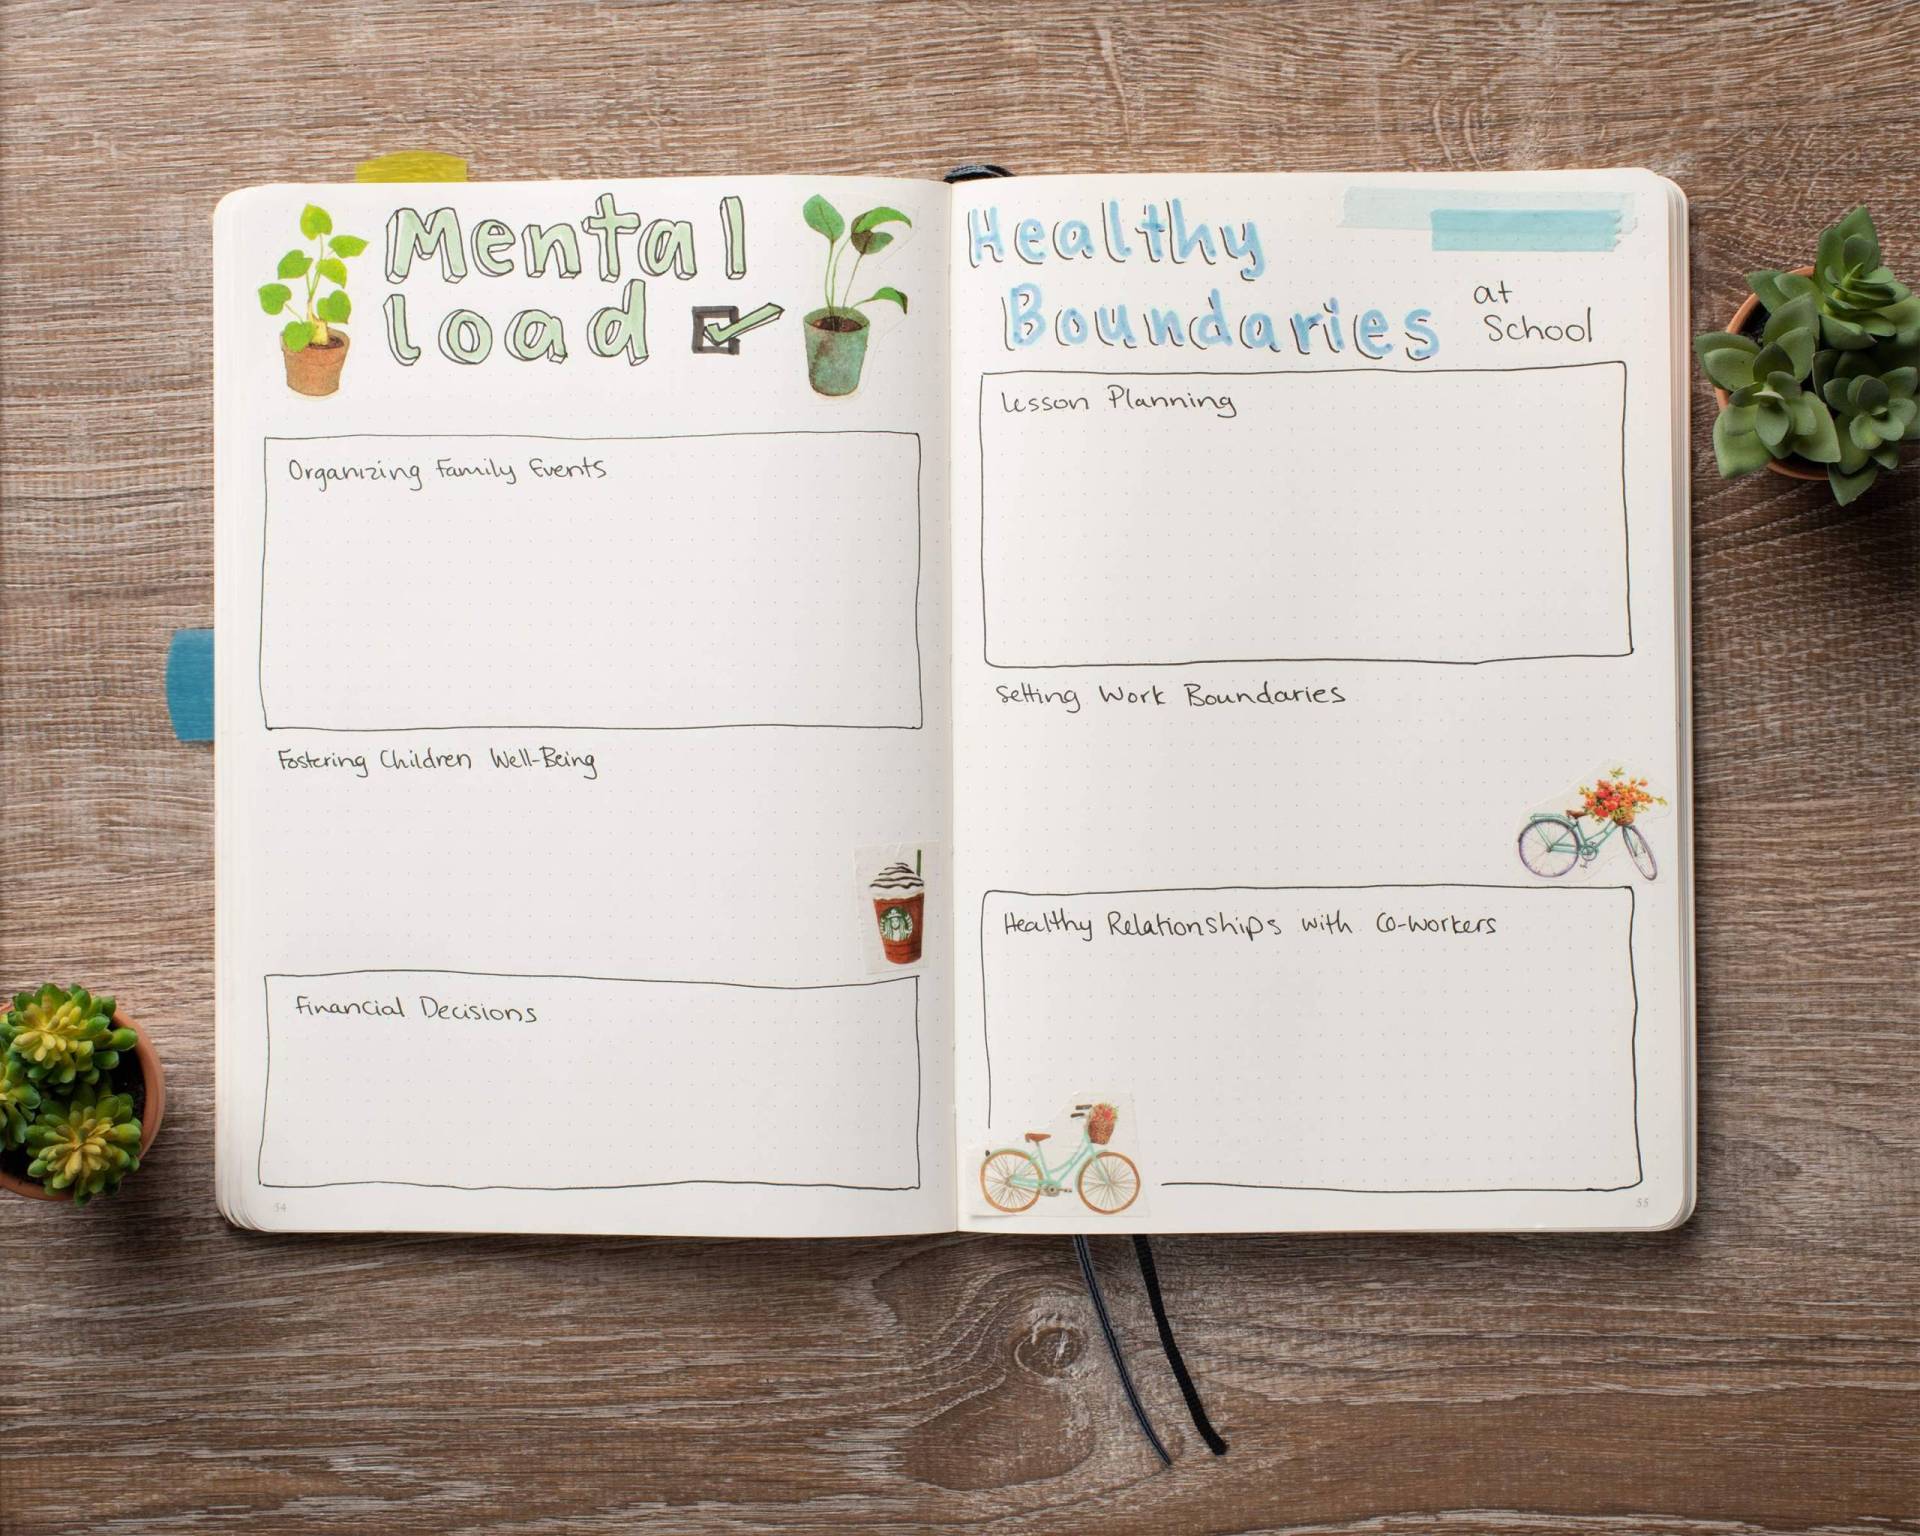 Mental
load
Organizing Family Events
Fostering Children Well-Being
Financial Decisions
54
Healthy
Boundaries
at
School
Lesson Planning
Setting Work Boundaries
Healthy Relationships with Co-workers
55